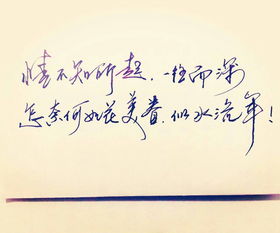 情不知所起，一往而深
怎奈何如花美眷，似水流年！